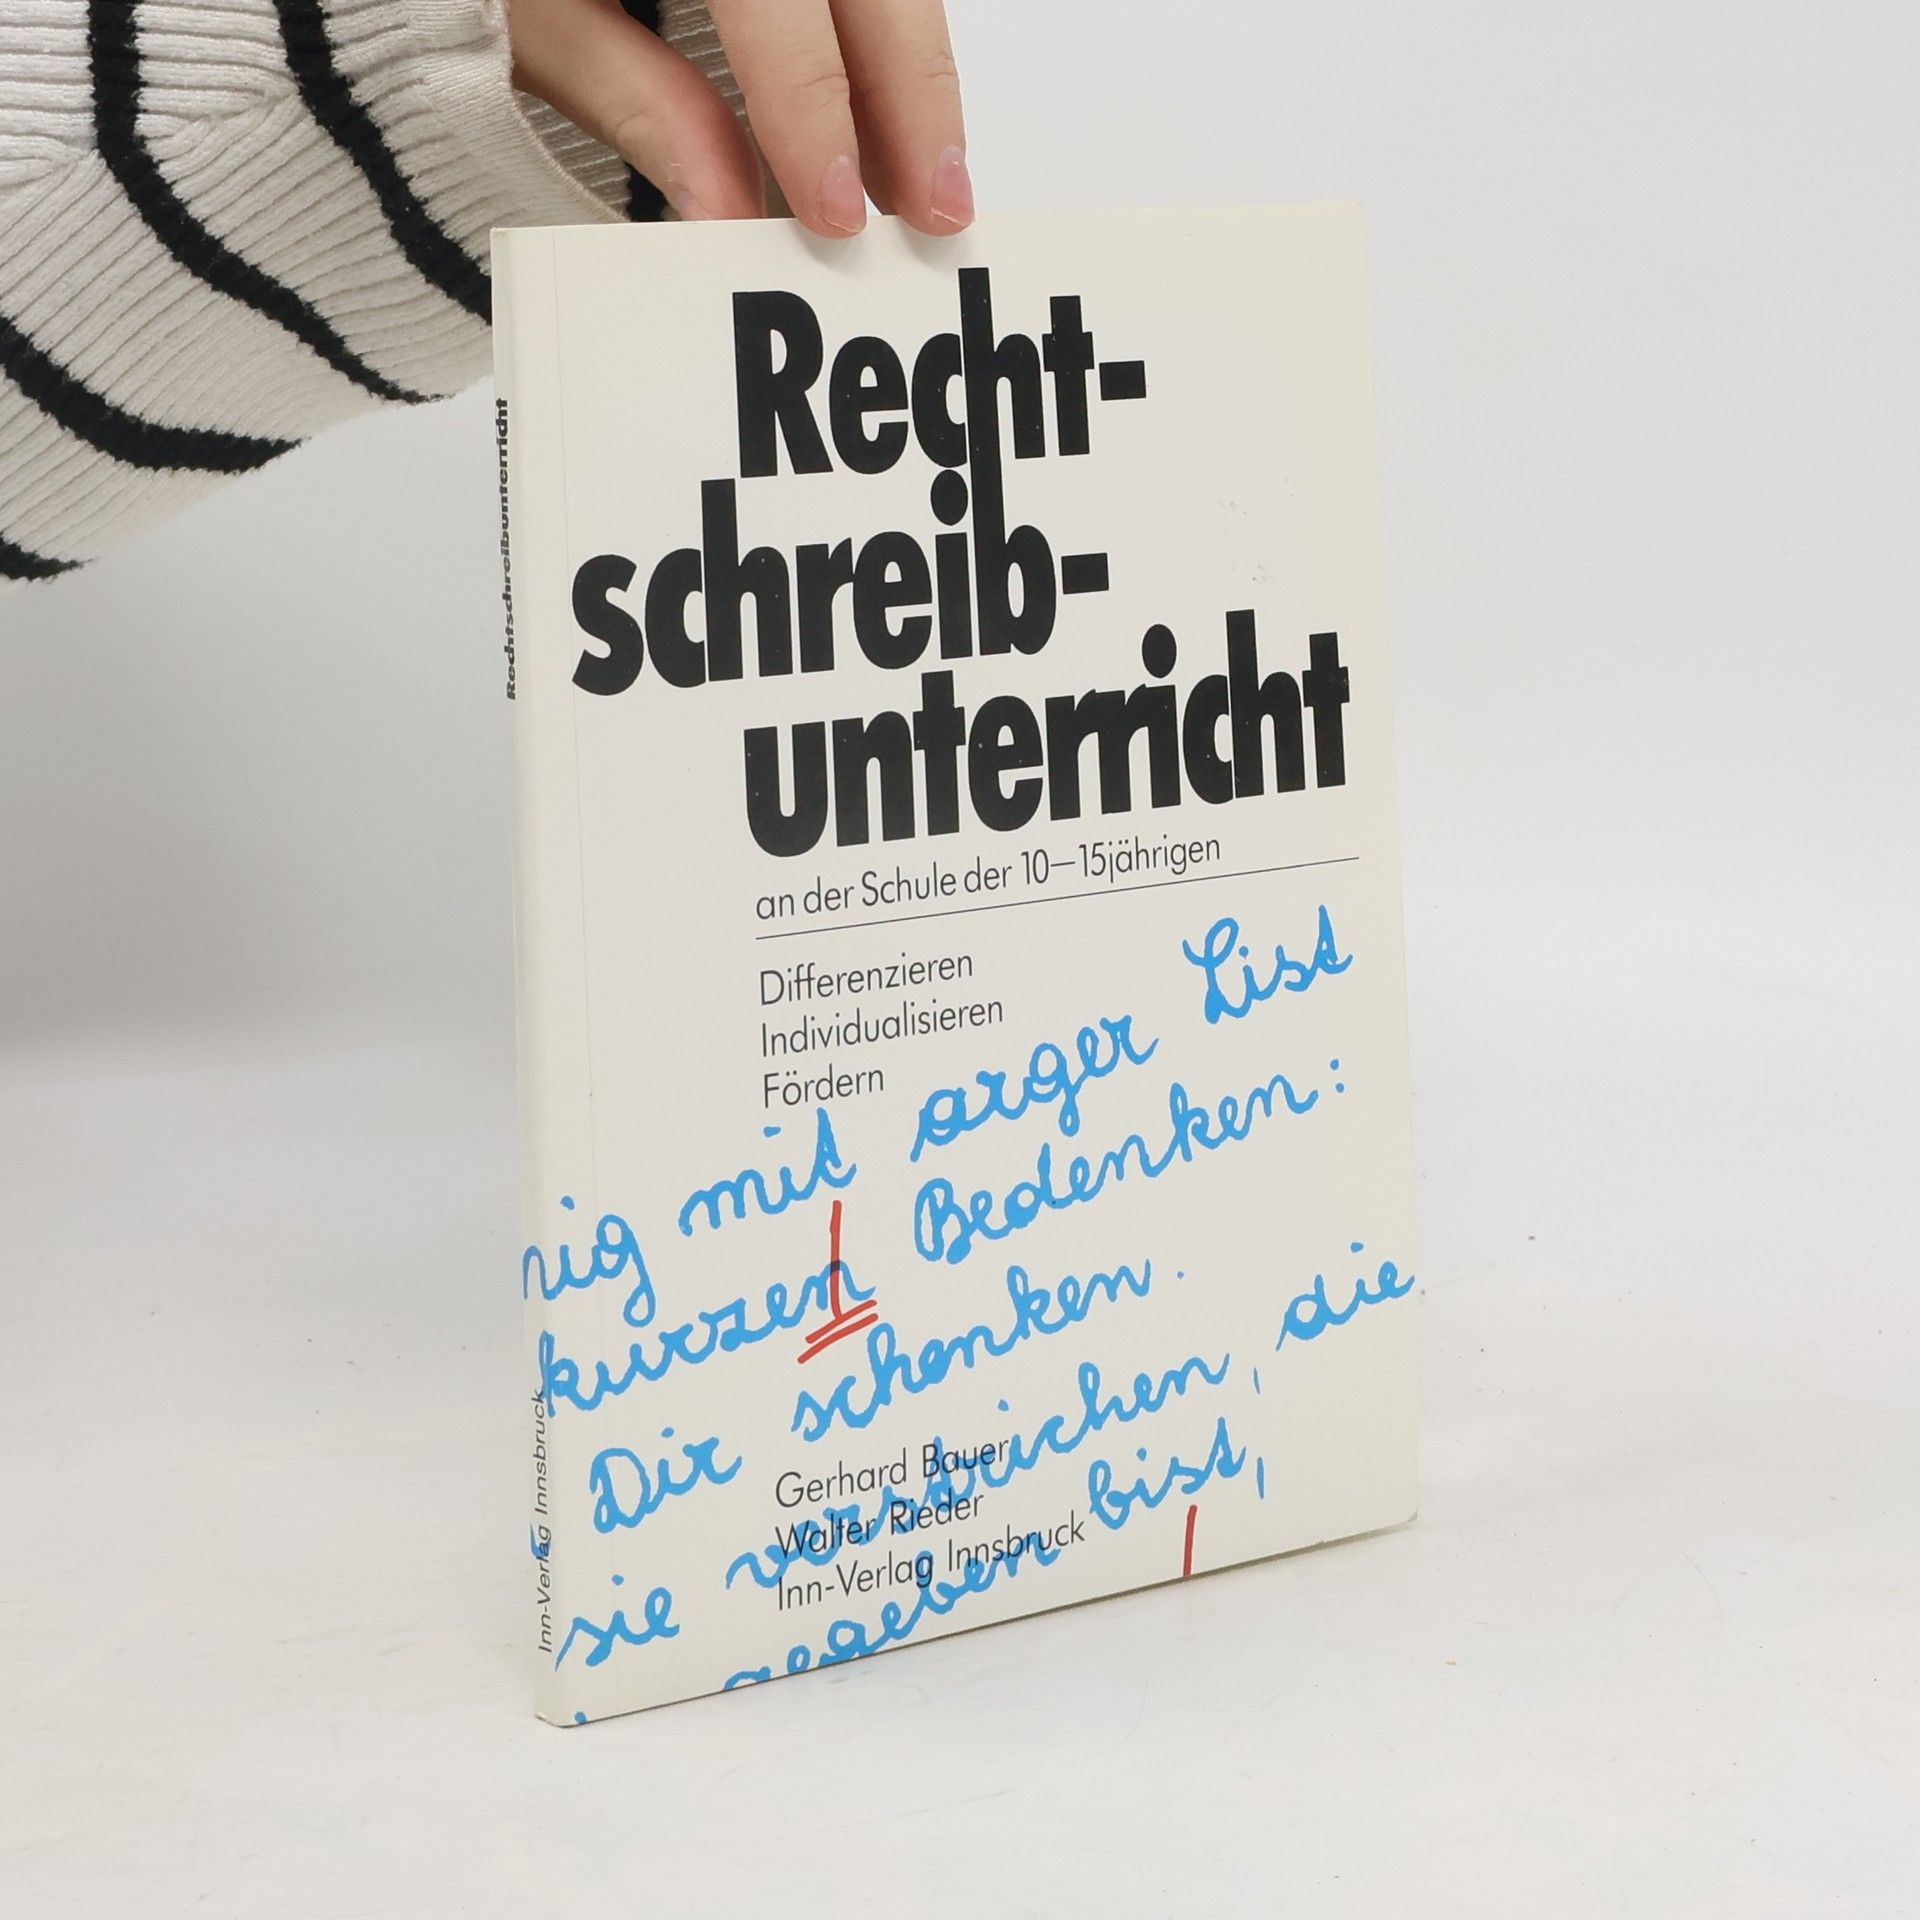 Recht-
schreib-
unterricht
an der Schule der 10—15jährigen
Differenzieren
Individualisieren
Fördern
nig mit arger List
kurzem Bedenken:
Dir schenken.
sie verstrichen, die
gegeben bist,
Gerhard Bauer
Walter Rieder
Inn-Verlag Innsbruck
Rechtschreibunterricht
Inn-Verlag Innsbruck